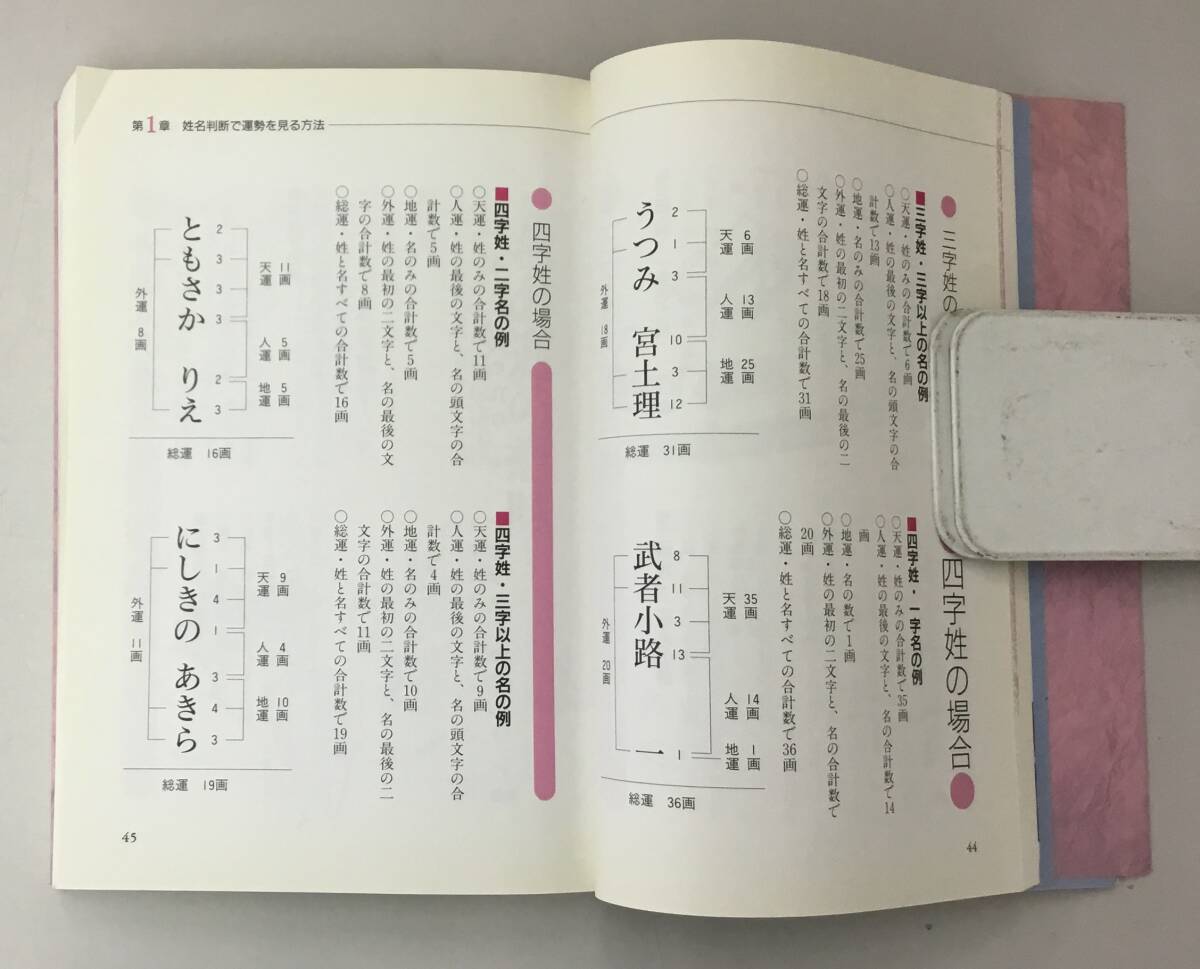 三字姓の
■三字姓・三字以上の名の例
○天運・姓のみの合計数で6画
○人運・姓の最後の文字と、名の頭文字の合
計数で13画
○地運・名のみの合計数で25画
○外運・姓の最初の二文字と、名の最後の二
文字の合計数で18画
○総運・姓と名すべての合計数で31画
天運 6画
人運 13画
地運 25画
2 1 3 10 3 12
うつみ 宮土理
外運 18画
総運 31画
四字姓の場合
■四字姓・一字名の例
○天運・姓のみの合計数で35画
○人運・姓の最後の文字と、名の合計数で14
画
○地運・名の数で1画
○外運・姓の最初の二文字と、名の合計数で
20画
○総運・姓と名すべての合計数で36画
天運 35画
人運 14画
地運 1画
8 11 3 13 1
武者小路 一
外運 20画
総運 36画
44
第1章 姓名判断で運勢を見る方法
四字姓の場合
■四字姓・二字名の例
○天運・姓のみの合計数で11画
○人運・姓の最後の文字と、名の頭文字の合
計数で5画
○地運・名のみの合計数で5画
○外運・姓の最初の二文字と、名の最後の文
字の合計数で8画
○総運・姓と名すべての合計数で16画
天運 11画
人運 5画
地運 5画
2 3 3 3 2 3
ともさか りえ
外運 8画
総運 16画
■四字姓・三字以上の名の例
○天運・姓のみの合計数で9画
○人運・姓の最後の文字と、名の頭文字の合
計数で4画
○地運・名のみの合計数で10画
○外運・姓の最初の二文字と、名の最後の二
文字の合計数で11画
○総運・姓と名すべての合計数で19画
天運 9画
人運 4画
地運 10画
3 1 4 1 3 4 3
にしきの あきら
外運 11画
総運 19画
45